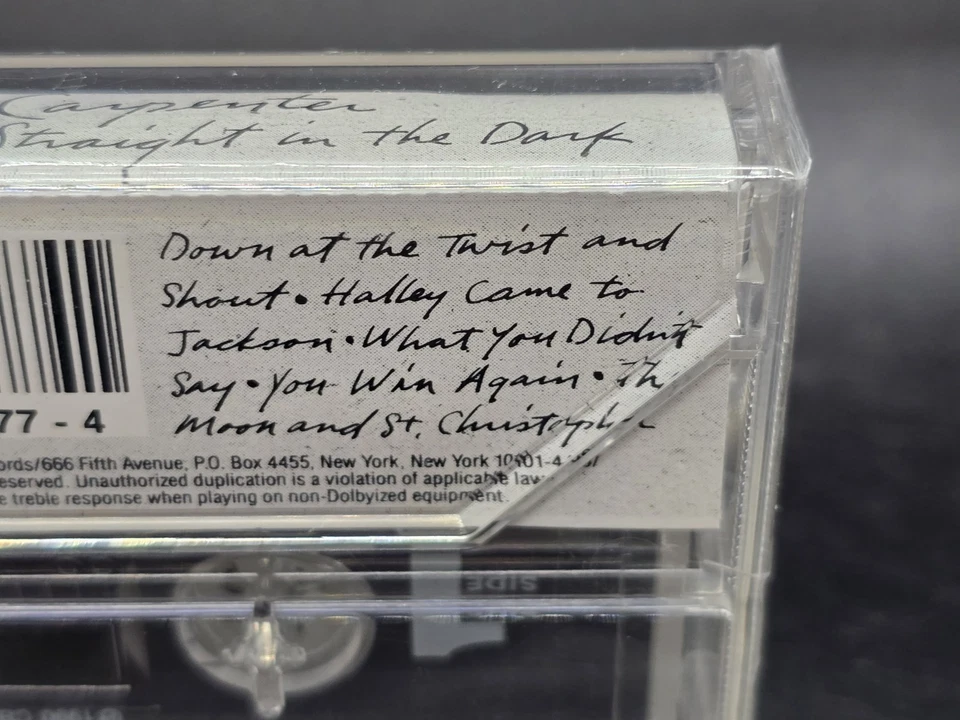 Carpenter
Straight in the Dark
Down at the Twist and
Shout • Halley Came to
Jackson • What You Didn't
Say • You Win Again • Th
Moon and St. Christopher
77 - 4
ords/666 Fifth Avenue, P.O. Box 4455, New York, New York
eserved. Unauthorized duplication is a violation of applicable law
e treble response when playing on non-Dolbyized equipment.
SIDE